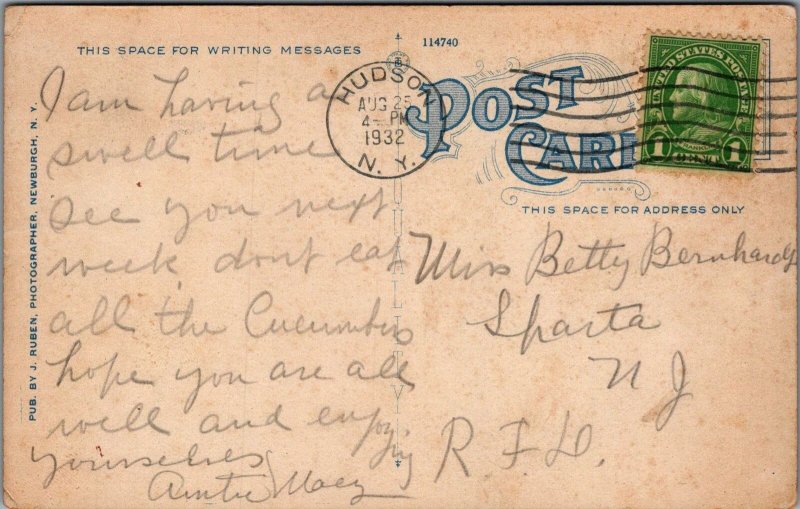 THIS SPACE FOR WRITING MESSAGES
114740
POST CARD
THIS SPACE FOR ADDRESS ONLY
HUDSON
AUG 25
4 - PM
1932
N. Y.
UNITED STATES POSTAGE
FRANKLIN
1 CENT 1
PUB. BY J. RUBEN, PHOTOGRAPHER, NEWBURGH, N. Y.
I am having a
swell time
see you next
week dont eat
all the Cucumbers
hope you are all
well and enjoying
yourselves
Auntie
Miss Betty Bernhardt
Sparta
N J
R. F. D.